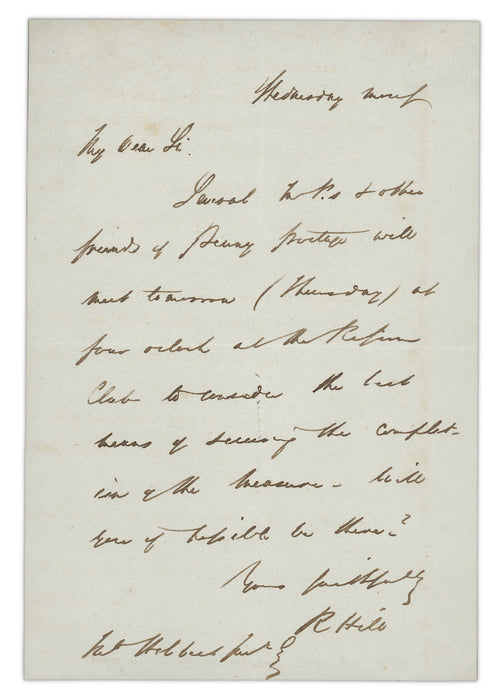 Wednesday morng
My Dear Sir.
Several M.P.s & other
friends of Penny postage will
meet tomorrow (Thursday) at
four o'clock at the Reform
Club to consider the best
means of securing the complet-
ion of the measure – Will
you if possible be there?
Yours faithfully
R Hill